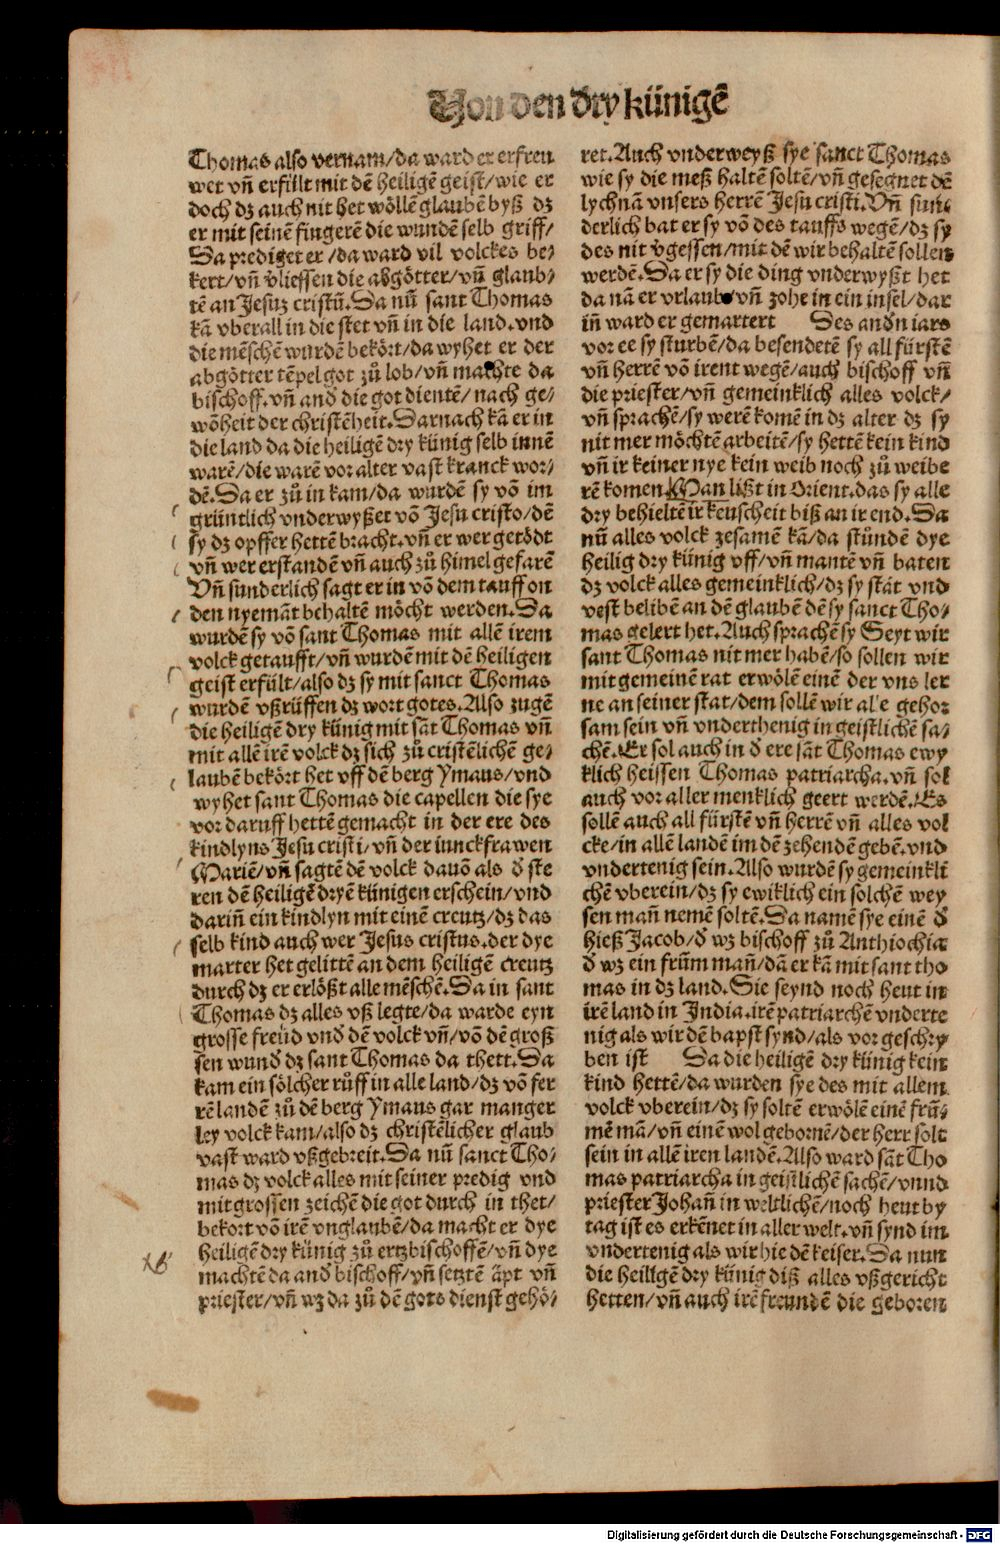 Von den dry künigē
Thomas also vernam/da ward er erfreu
wet vñ erfült mit dē heiligē geist/wie er
doch dz auch nit het wöllē glaubē byß dz
er mit seinē fingerē die wundē selb griff/
Da prediget er/da ward vil volckes be/
kert/vñ v̄liessen die abgötter/vñ glaub/
tē an Jesuz cristū. Da nū sant Thomas
kā vberall in die stet vñ in die land.vnd
die mēschē wurdē bekört/da wyhet er der
abgötter tēpel got zů lob/vñ machte da
bischoff.vñ and̄ die got dientē/nach ge/
wōheit der christēheit. Darnach kā er in
die land da die heiligē dry künig selb innē
warē/die warē vor alter vast kranck wor/
dē. Da er zů in kam/da wurdē sy vō im
grüntlich vnderwyßet vō Jesu cristo/dē
sy dz opffer hettē bracht.vñ er wer getödt
vñ wer erstandē vñ auch zů himel gefarē
Vñ sunderlich sagt er in vō dem tauff on
den nyemāt behaltē möcht werden. Da
wurdē sy vō sant Thomas mit allē irem
volck getaufft/vñ wurdē mit dē heiligen
geist erfült/also dz sy mit sanct Thomas
wurdē vßrüffen dz wort gotes. Also zugē
die heiligē dry künig mit sāt Thomas vñ
mit allē irē volck dz sich zů cristēlichē ge/
laubē bekört het vff dē berg Ymaus/vnd
wyhet sant Thomas die capellen die sye
vor daruff hettē gemacht in der ere des
kindlyns Jesu cristi/vñ der iunckfrawen
Mariē/vñ sagtē dē volck dauō als d̄ ste
ren dē heiligē dryē künigen erschein/vnd
dariñ ein kindlyn mit einē creutz/dz das
selb kind auch wer Jesus cristus.der dye
marter het gelittē an dem heiligē creutz
durch dz er erlößt alle mēschē. Da in sant
Thomas dz alles vß legte/da warde eyn
grosse freüd vnd̄ dē volck vñ/vō dē groß
sen wund̄ dz sant Thomas da thett. Da
kam ein sölcher růff in alle land/dz vō fer
rē landē zů dē berg Ymaus gar manger
ley volck kam/also dz christēlicher glaub
vast ward vßgebreit. Da nū sanct Tho/
mas dz volck alles mit seiner predig vnd
mit grossen zeichē die got durch in thet/
bekort vō irē vnglaubē/da macht er dye
heiligē dry künig zů ertzbischoffē/vñ dye
machtē da and̄ bischoff/vñ setztē äpt vñ
priester/vñ wz da zů dē gots dienst gehö/
ret. Auch vnderweyß sye sanct Thomas
wie sy die meß haltē soltē/vñ gesegnet dē
lychnā vnsers herrē Jesu cristi. Vñ sun/
derlich bat er sy vō des tauffs wegē/dz sy
des nit v̄gessen/mit dē wir behaltē sollen
werdē. Da er sy die ding vnderwyßt het
da nā er vrlaub vñ zohe in ein insel/dar
iñ ward er gemartert Des and̄n iars
vor ee sy sturbē/da besendetē sy all fürstē
vñ herrē vō irent wegē/auch bischoff vñ
die priester/vñ gemeinklich alles volck/
vñ sprachē/sy werē komē in dz alter dz sy
nit mer möchtē arbeitē/sy hettē kein kind
vñ ir keiner nye kein weib noch zů weibe
rē komen. Man lißt in Orient.das sy alle
dry behieltē ir keuscheit biß an ir end. Da
nū alles volck zesamē kā/da stündē dye
heilig dry künig vff/vñ mantē vñ baten
dz volck alles gemeinklich/dz sy stāt vnd
vest belibē an dē glaubē dē sy sanct Tho/
mas gelert het. Auch sprachē sy Seyt wir
sant Thomas nit mer habē/so sollen wir
mit gemeinē rat erwölē einē der vns ler
ne an seiner stat/dem sollē wir alle gehor
sam sein vñ vnderthenig in geistlichē sa/
chē. Er sol auch in d̄ ere sāt Thomas ewy
klich heissen Thomas patriarcha.vñ sol
auch vor aller menklich geert werdē. Es
sollē auch all fürstē vñ herrē vñ alles vol
cke/in allē landē im dē zehendē gebē.vnd
vndertenig sein. Also wurdē sy gemeinkli
chē vberein/dz sy ewiklich ein solchē wey
sen mañ nemē soltē. Da namē sye einē d̄
hieß Jacob/d̄ wz bischoff zů Anthiochia
d̄ wz ein frūm mañ/dā er kā mit sant tho
mas in dz land. Sie seynd noch heut in
irē land in India.irē patriarchē vnderte
nig als wir dē bapst synd/als vor geschry
ben ist Da die heiligē dry künig kein
kind hettē/da wurden sye des mit allem
volck vberein/dz sy soltē erwölē einē frū/
mē mā/vñ einē wol gebornē/der herr solt
sein in allē iren landē. Also ward sāt Tho
mas patriarcha in geistlichē sachē/vnnd
priester Johañ in weltlichē/noch heut by
tag ist es erkēnet in aller welt.vñ synd im
vndertenig als wir hie dē keiser. Da nun
die heiligē dry künig diß alles vßgericht
hetten/vñ auch irē freundē die geboren
Digitalisierung gefördert durch die Deutsche Forschungsgemeinschaft - DFG